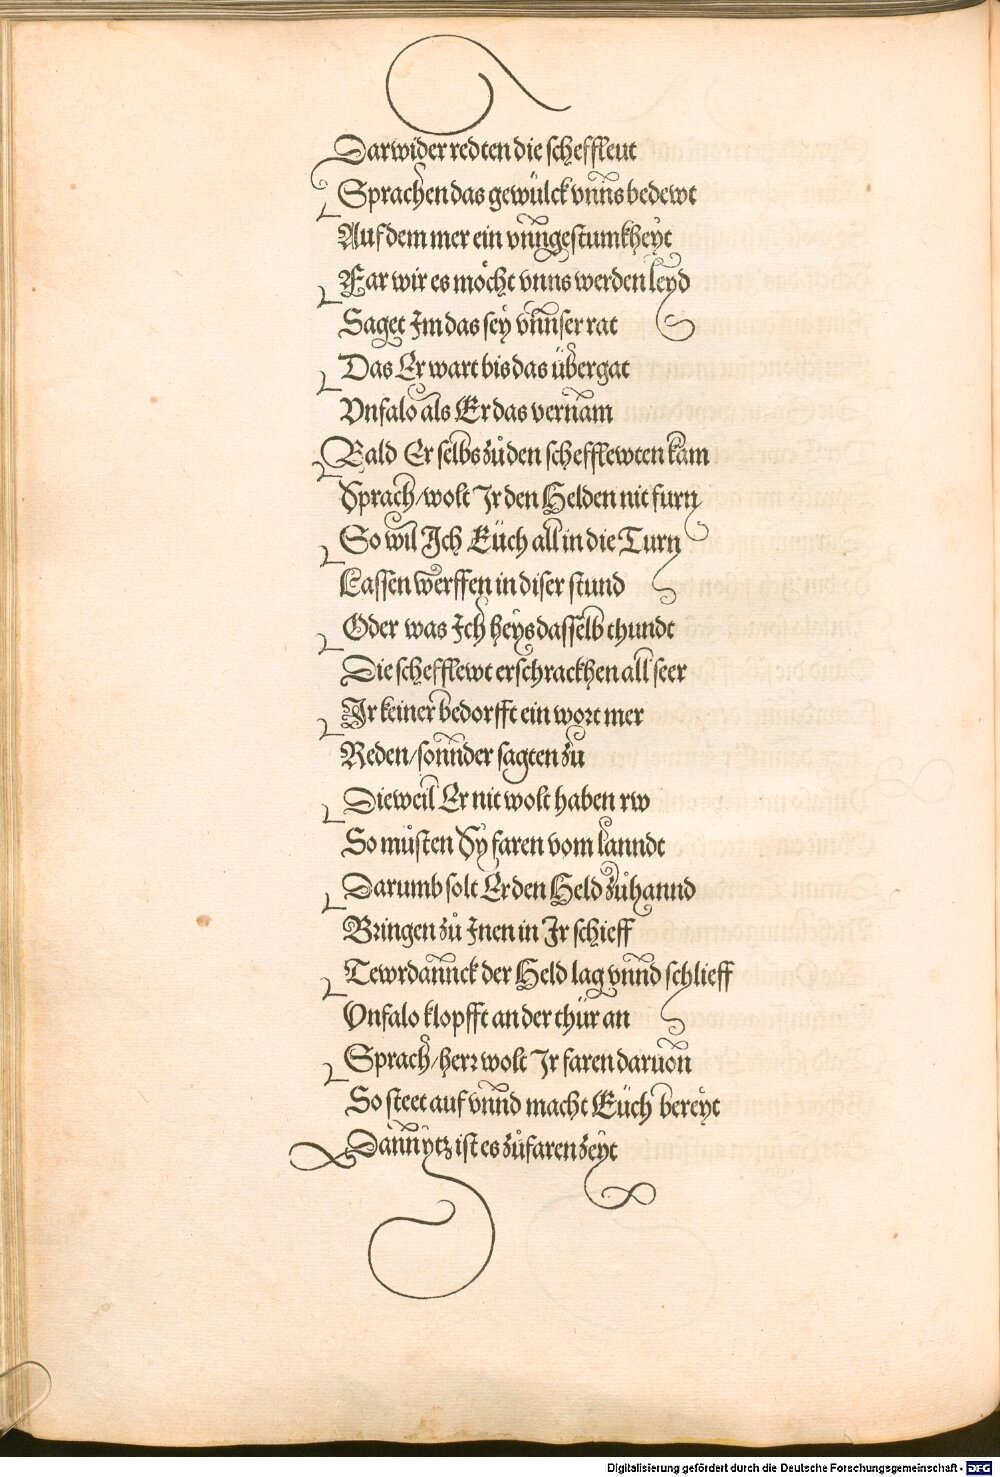 Darwider redten die scheffleut
Sprachen das gewülck vnnns bedewt
Auf dem mer ein vnngestumkheyt
Far wir es möcht vnns werden leyd
Saget Im das sey vnnser rat
Das Er wart bis das übergat
Vnfalo als Er das vernam
Bald Er selbs zůden schefflewten kam
Sprach/wolt Ir den Helden nit furn
So wil Ich Eüch all in die Turn
Lassen werffen in diser stund
Oder was Ich heys dasselb thundt
Die schefflewt erschrackhen all seer
Ir keiner bedorfft ein wort mer
Reden/sonnder sagten zu
Dieweil Er nit wolt haben rw
So můsten Sy faren vom lanndt
Darumb solt Er den Held zůhannd
Bringen zů Inen in Ir schieff
Tewrdannck der Held lag vnnd schlieff
Vnfalo klopfft an der thür an
Sprach/herr wolt Ir faren daruon
So steet auf vnnd macht Eüch bereyt
Dann ytz ist es zůfaren zeyt
Digitalisierung gefördert durch die Deutsche Forschungsgemeinschaft - DFG